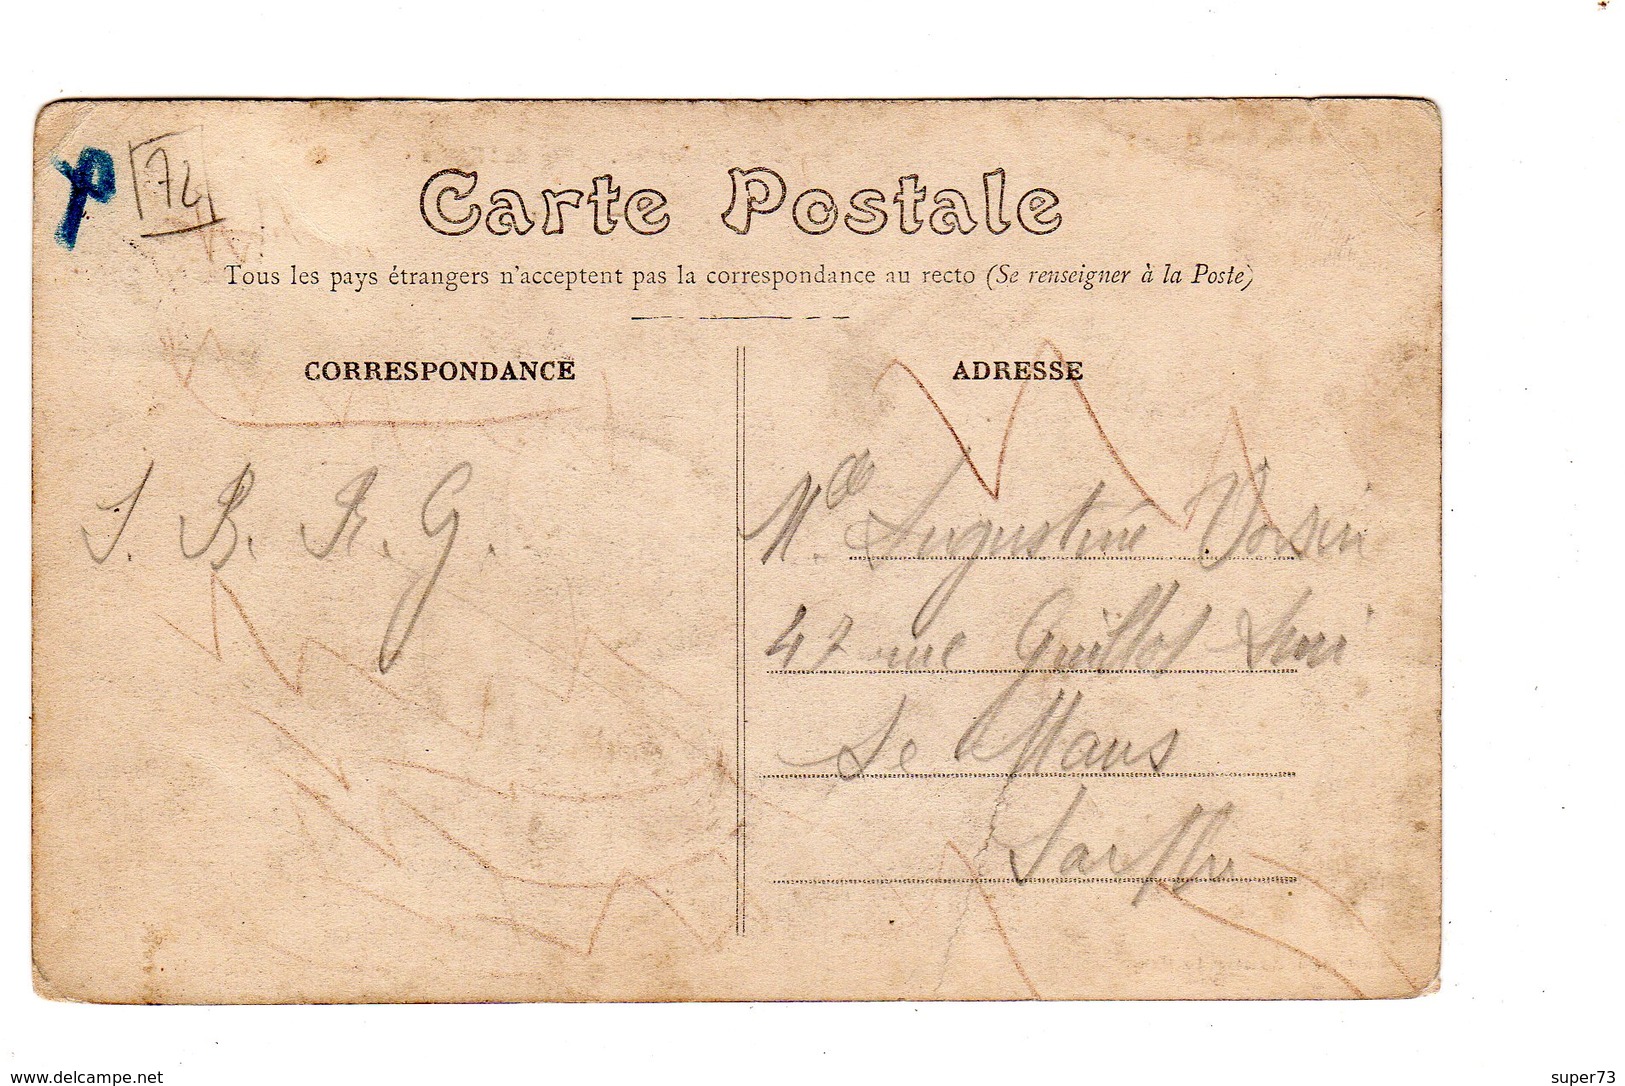 72
Carte Postale
Tous les pays étrangers n'acceptent pas la correspondance au recto (Se renseigner à la Poste)
CORRESPONDANCE
S. B. R. G.
ADRESSE
Mlle Augustine Voisin
47 rue Guillot
Le Mans
Sarthe
www.delcampe.net
super73